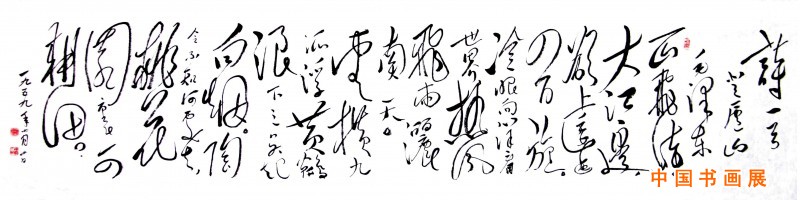 詩一首
登廬山
毛泽东
一山飛峙
大江邊。
欲上逶迤
四百旋。
冷眼向洋看
世界热风
飛雨洒
南天。
雲横九
派浮黄鶴
浪下三吴起
白烟。陶
令不知何處去
桃花
源里可
耕田。
一九五九年七月一日
中国书画展